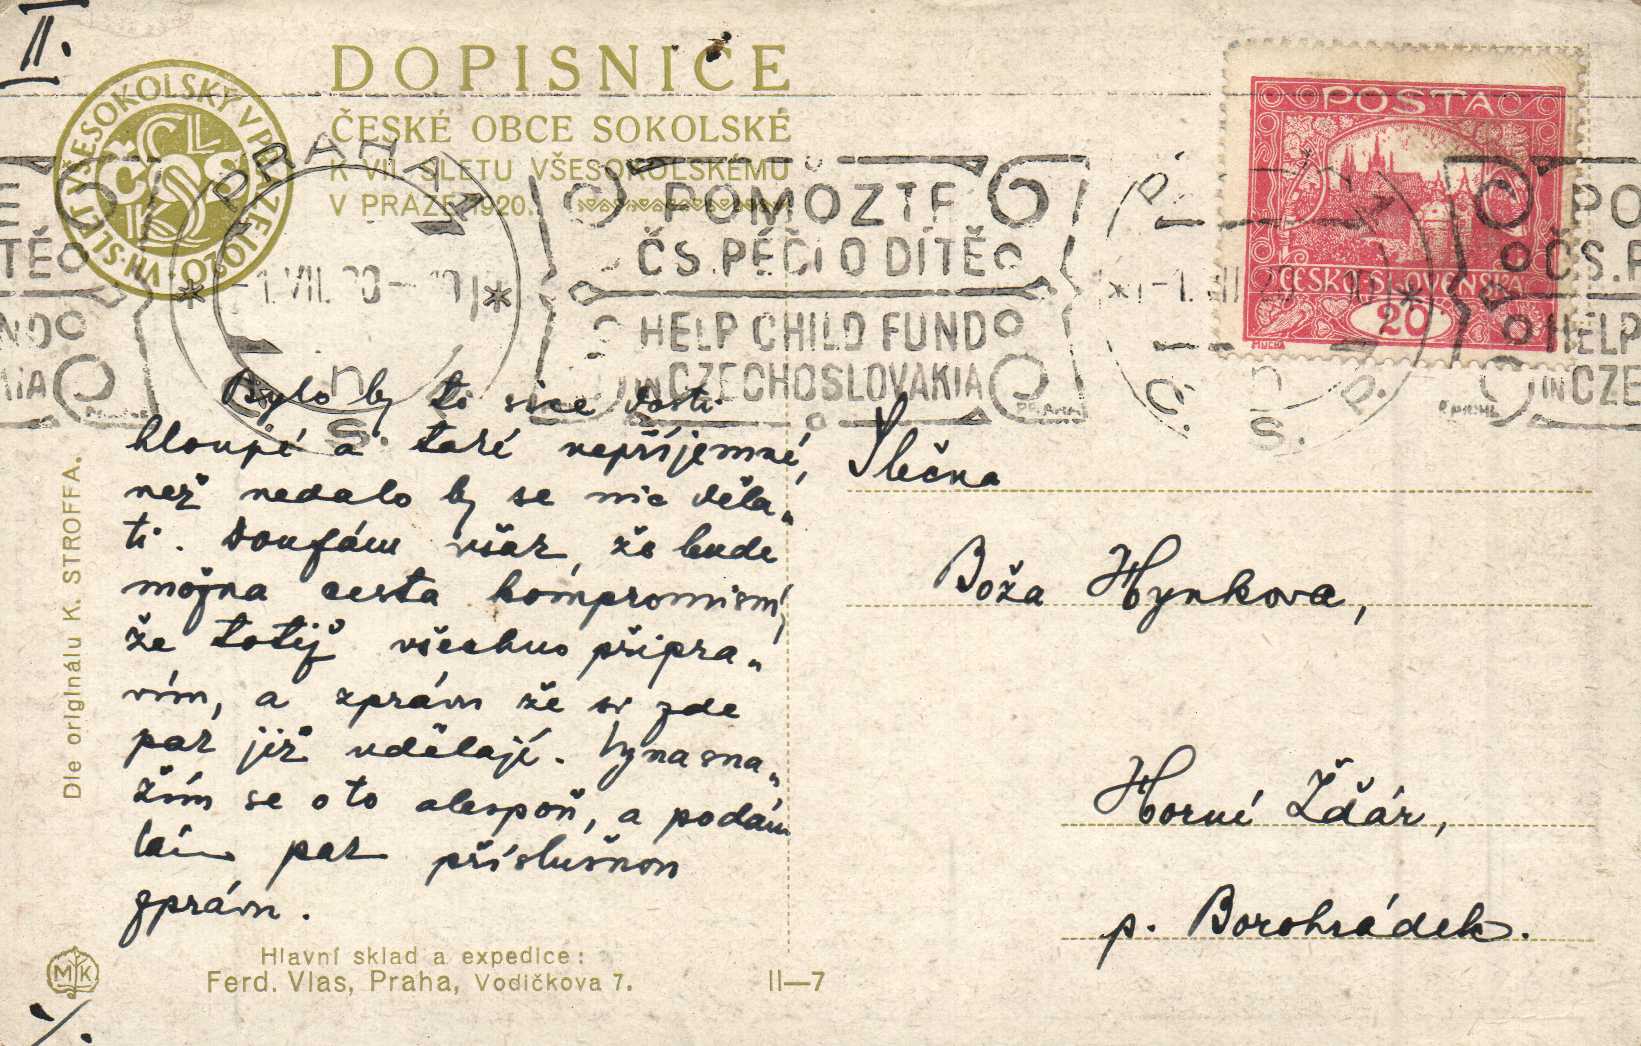 II.
DOPISNICE
ČESKÉ OBCE SOKOLSKÉ
K VII. SLETU VŠESOKOLSKÉMU
V PRAZE 1920.
VII. SLET VŠESOKOLSKÝ V PRAZE 1920
ČOS
PRAHA 1
-1.VII.20-
POMOZTE
ČS. PÉČI O DÍTĚ
HELP CHILD FUND
IN CZECHOSLOVAKIA
POŠTA
ČESKO-SLOVENSKÁ
20
MUCHA
Bylo by to sice dosti
hloupé a také nepříjemné,
než nedalo by se nic děla-
ti. Doufám však, že bude
možna cesta kompromisní,
že totiž všechno připra-
vím, a zprávu že si zde
pak již udělají. Vynasna-
žím se o to alespoň, a podám
pak příslušnou
zprávu.
Slečna
Boža Hynkova,
Horní Žďár,
p. Borohrádek.
Dle originálu K. STROFFA.
MK
Hlavní sklad a expedice:
Ferd. Vlas, Praha, Vodičkova 7.
II—7